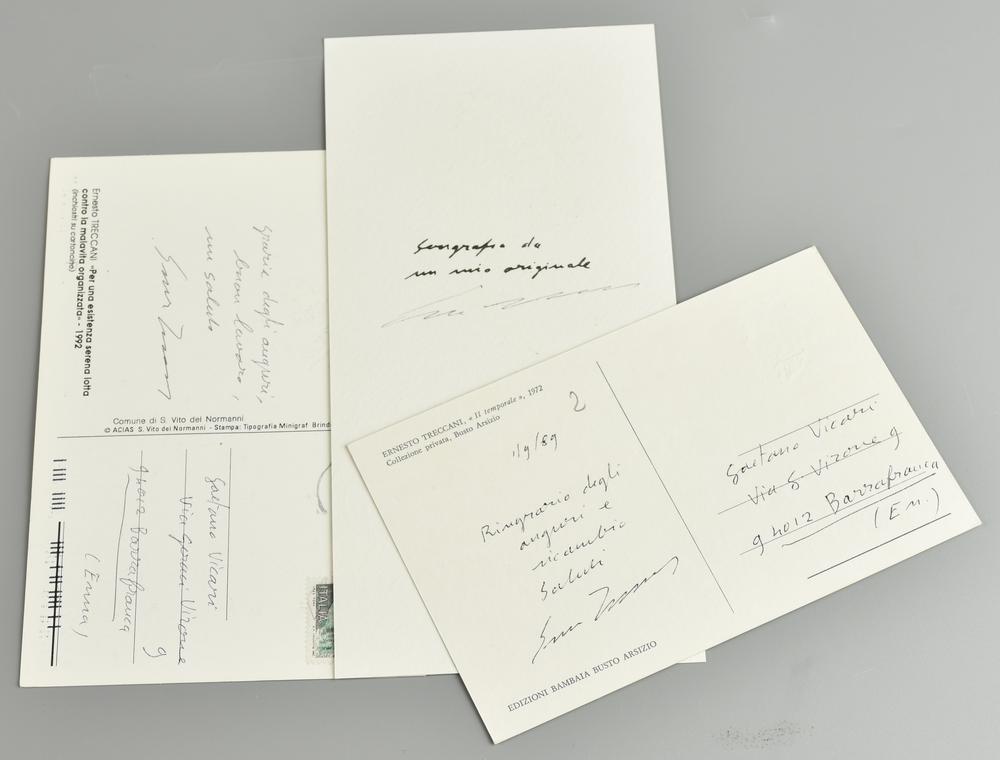 Ernesto TRECCANI «Per una esistenza serena lotta
contro la malavita organizzata» - 1992
(inchiostri su cartoncino)
grazie degli auguri,
buon lavoro,
un saluto
Comune di S. Vito dei Normanni
© ACIAS S. Vito dei Normanni - Stampa: Tipografia Minigraf Brind
Gaetano Vicari
Via Virone
9
94012 Barrafranca
(Enna)
ITALIA
da
un mio originale
ERNESTO TRECCANI, « Il temporale », 1972
Collezione privata, Busto Arsizio
2
1/9/89
Ringrazio degli
auguri e
ricambio
saluti
EDIZIONI BAMBAIA BUSTO ARSIZIO
Gaetano Vicari
Via G. Virone 9
94012 Barrafranca
(En.)